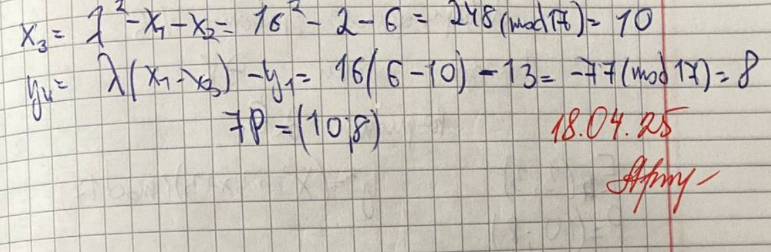 x₃ = λ² - x₁ - x₂ = 16² - 2 - 6 = 248 (mod 17) = 10
y₄ = λ(x₁ - x₃) - y₁ = 16(6 - 10) - 13 = -77 (mod 17) = 8
7P = (10;8)
18.04.25